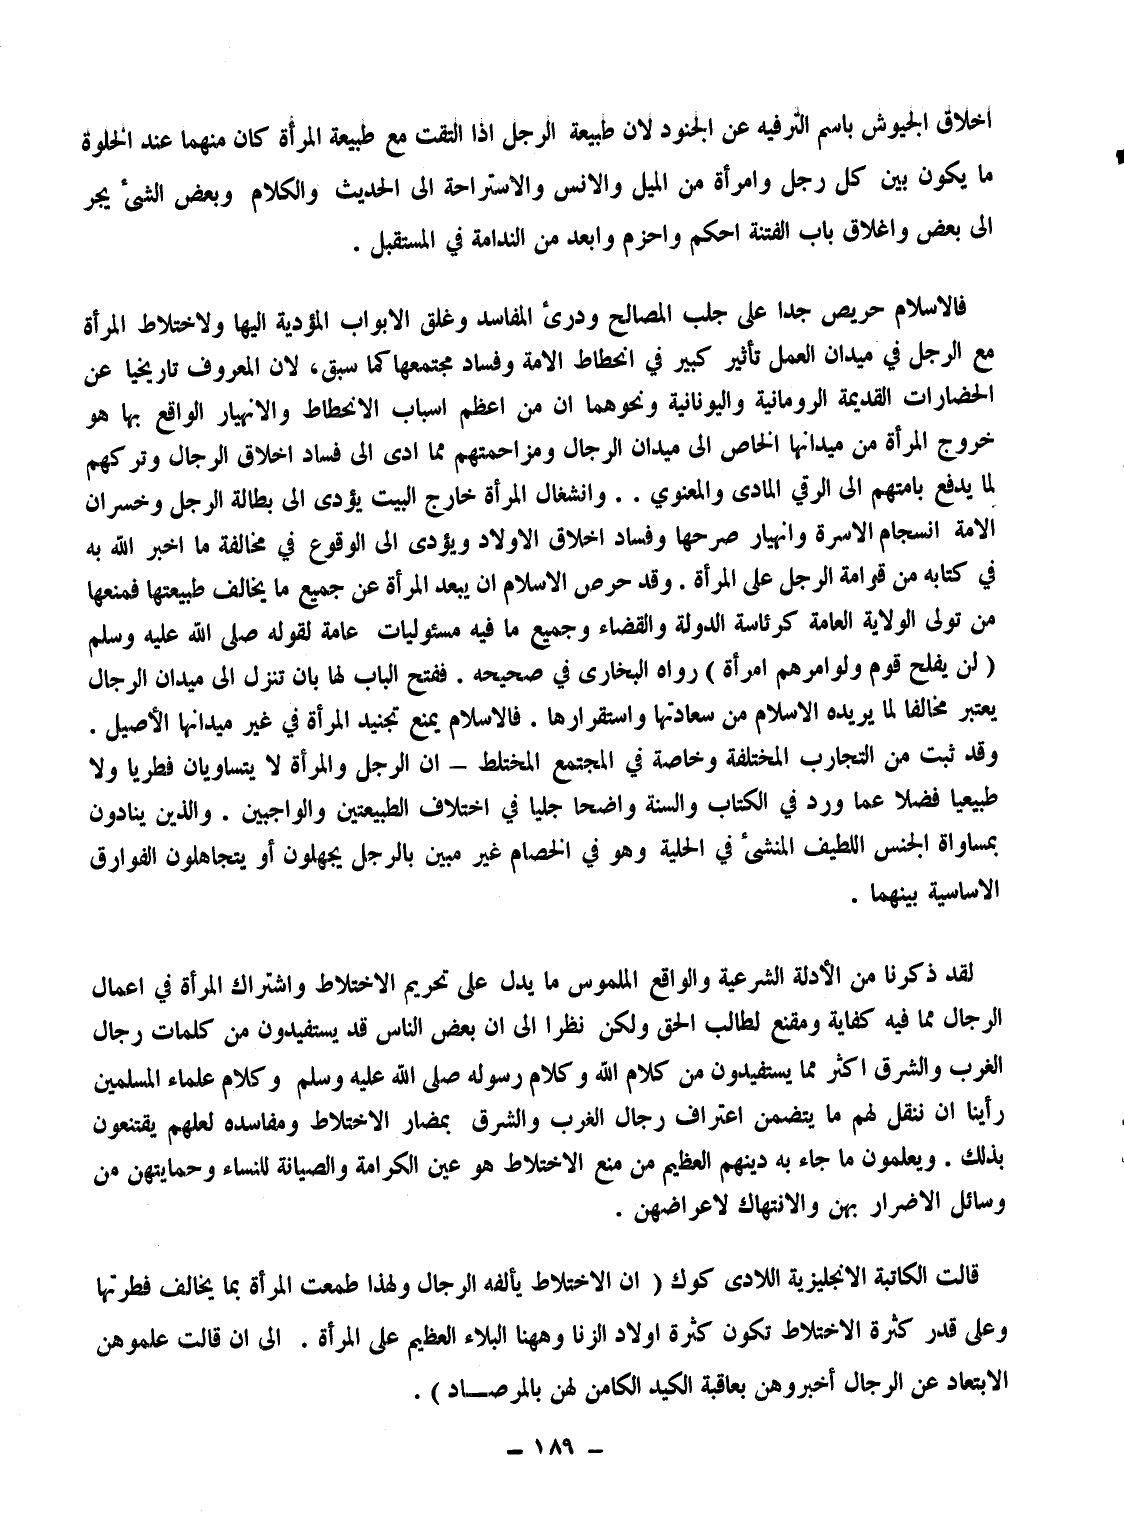 اخلاق الجيوش باسم الترفيه عن الجنود لان طبيعة الرجل اذا التقت مع طبيعة المرأة كان منهما عند الخلوة
ما يكون بين كل رجل وامرأة من الميل والانس والاستراحة الى الحديث والكلام وبعض الشىٔ يجر
الى بعض واغلاق باب الفتنة احكم واحزم وابعد من الندامة في المستقبل .
فالاسلام حريص جدا على جلب المصالح ودرىٔ المفاسد وغلق الابواب المؤدية اليها ولاختلاط المرأة
مع الرجل في ميدان العمل تأثير كبير في انحطاط الامة وفساد مجتمعها كما سبق، لان المعروف تاريخيا عن
الحضارات القديمة الرومانية واليونانية ونحوهما ان من اعظم اسباب الانحطاط والانهيار الواقع بها هو
خروج المرأة من ميدانها الخاص الى ميدان الرجال ومزاحمتهم مما ادى الى فساد اخلاق الرجال وتركهم
لما يدفع بامتهم الى الرقي المادى والمعنوي . . وانشغال المرأة خارج البيت يؤدى الى بطالة الرجل وخسران
الامة انسجام الاسرة وانهيار صرحها وفساد اخلاق الاولاد ويؤدى الى الوقوع في مخالفة ما اخبر الله به
في كتابه من قوامة الرجل على المرأة . وقد حرص الاسلام ان يبعد المرأة عن جميع ما يخالف طبيعتها فمنعها
من تولى الولاية العامة كرئاسة الدولة والقضاء وجميع ما فيه مسئوليات عامة لقوله صلى الله عليه وسلم
( لن يفلح قوم ولوامرهم امرأة ) رواه البخارى في صحيحه . ففتح الباب لها بان تنزل الى ميدان الرجال
يعتبر مخالفا لما يريده الاسلام من سعادتها واستقرارها . فالاسلام يمنع تجنيد المرأة في غير ميدانها الأصيل .
وقد ثبت من التجارب المختلفة وخاصة في المجتمع المختلط – ان الرجل والمرأة لا يتساويان فطريا ولا
طبيعيا فضلا عما ورد في الكتاب والسنة واضحا جليا في اختلاف الطبيعتين والواجبين . والذين ينادون
بمساواة الجنس اللطيف المنشىٔ في الحلية وهو في الخصام غير مبين بالرجل يجهلون أو يتجاهلون الفوارق
الاساسية بينهما .
لقد ذكرنا من الأدلة الشرعية والواقع الملموس ما يدل على تحريم الاختلاط واشتراك المرأة في اعمال
الرجال مما فيه كفاية ومقنع لطالب الحق ولكن نظرا الى ان بعض الناس قد يستفيدون من كلمات رجال
الغرب والشرق اكثر مما يستفيدون من كلام الله وكلام رسوله صلى الله عليه وسلم وكلام علماء المسلمين
رأينا ان ننقل لهم ما يتضمن اعتراف رجال الغرب والشرق بمضار الاختلاط ومفاسده لعلهم يقتنعون
بذلك . ويعلمون ما جاء به دينهم العظيم من منع الاختلاط هو عين الكرامة والصيانة للنساء وحمايتهن من
وسائل الاضرار بهن والانتهاك لاعراضهن .
قالت الكاتبة الانجليزية اللادى كوك ( ان الاختلاط يألفه الرجال ولهذا طمعت المرأة بما يخالف فطرتها
وعلى قدر كثرة الاختلاط تكون كثرة اولاد الزنا وههنا البلاء العظيم على المرأة . الى ان قالت علموهن
الابتعاد عن الرجال أخبروهن بعاقبة الكيد الكامن لهن بالمرصـــاد ) .
– ١٨٩ –